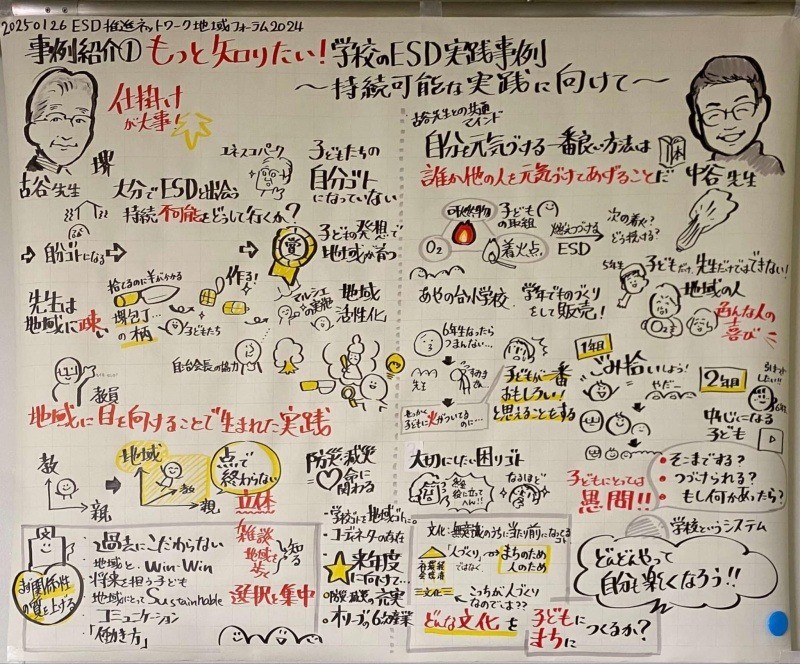 20250126 ESD推進ネットワーク地域フォーラム2024
事例紹介① もっと知りたい!学校のESD実践事例
〜持続可能な実践に向けて〜
仕掛け
が大事!
古谷先生
堺
大分でESDと出会う
持続不可能をどうして行くか?
ユネスコパーク
子どもたちの
自分ゴト
になっていない
自分ゴトになる
子どもの発想で
地域が育つ
先生は
地域に疎い
捨てるのに羊がかかる
堺包丁…
の柄
子どもたち
作る!
マルシェ
の実施
地域
活性化
自治会長の協力
教員
地域に目を向けることで生まれた実践
教
親
地域
教
親
点で
終わらない
立体
防災・減災
=命に
関わる
お関係性
の質を上げる
・過去にこだわらない
・地域と Win-Win
・将来を担う子ども
・地域にとってSustainable
・コミュニケーション
・「働き方」
雑談
地域を
歩く
知る
選択と集中
・学校ゴトで地域ゴトに。
・コーディネータの存在
来年度
に向けて…
・防災・減災の充実
・オリーブの6次産業
古谷先生との共通
マインド
自分を元気づける一番良い方法は
誰か他の人を元気づけてあげることだ
中谷先生
可燃物
O2
着火点
子ども
の取組
燃えつづける
ESD
次の着火?
どう残す?
あやの台小学校
学年でものづくり
をして販売!
5年生
子どもだけ、先生だけではできない!
地域の人
O2
色んな人の
喜び
6年生なったら
つまんない…
先生
せっかく
子どもに火がついてるのに…
子どもが一番
おもしろい!
と思えることをする
1年目
ごみ拾いしよう!
やだー
2年目
6年
中心になる
子ども
大切にしたい困りゴト
なるほど
子どもにとっては
愚問!!
・そこまでする?
・つづけられる?
・もし何かあったら?
学校というシステム
文化:無意識のうちに当たり前になってくるコト
「人づくり」ではなく、
まちのため
人のため
文化
←こっちが人づくり
なのでは??
どんな文化を
子どもに
まちに
つくるか?
どんどんやって
自分も楽しくなろう!!